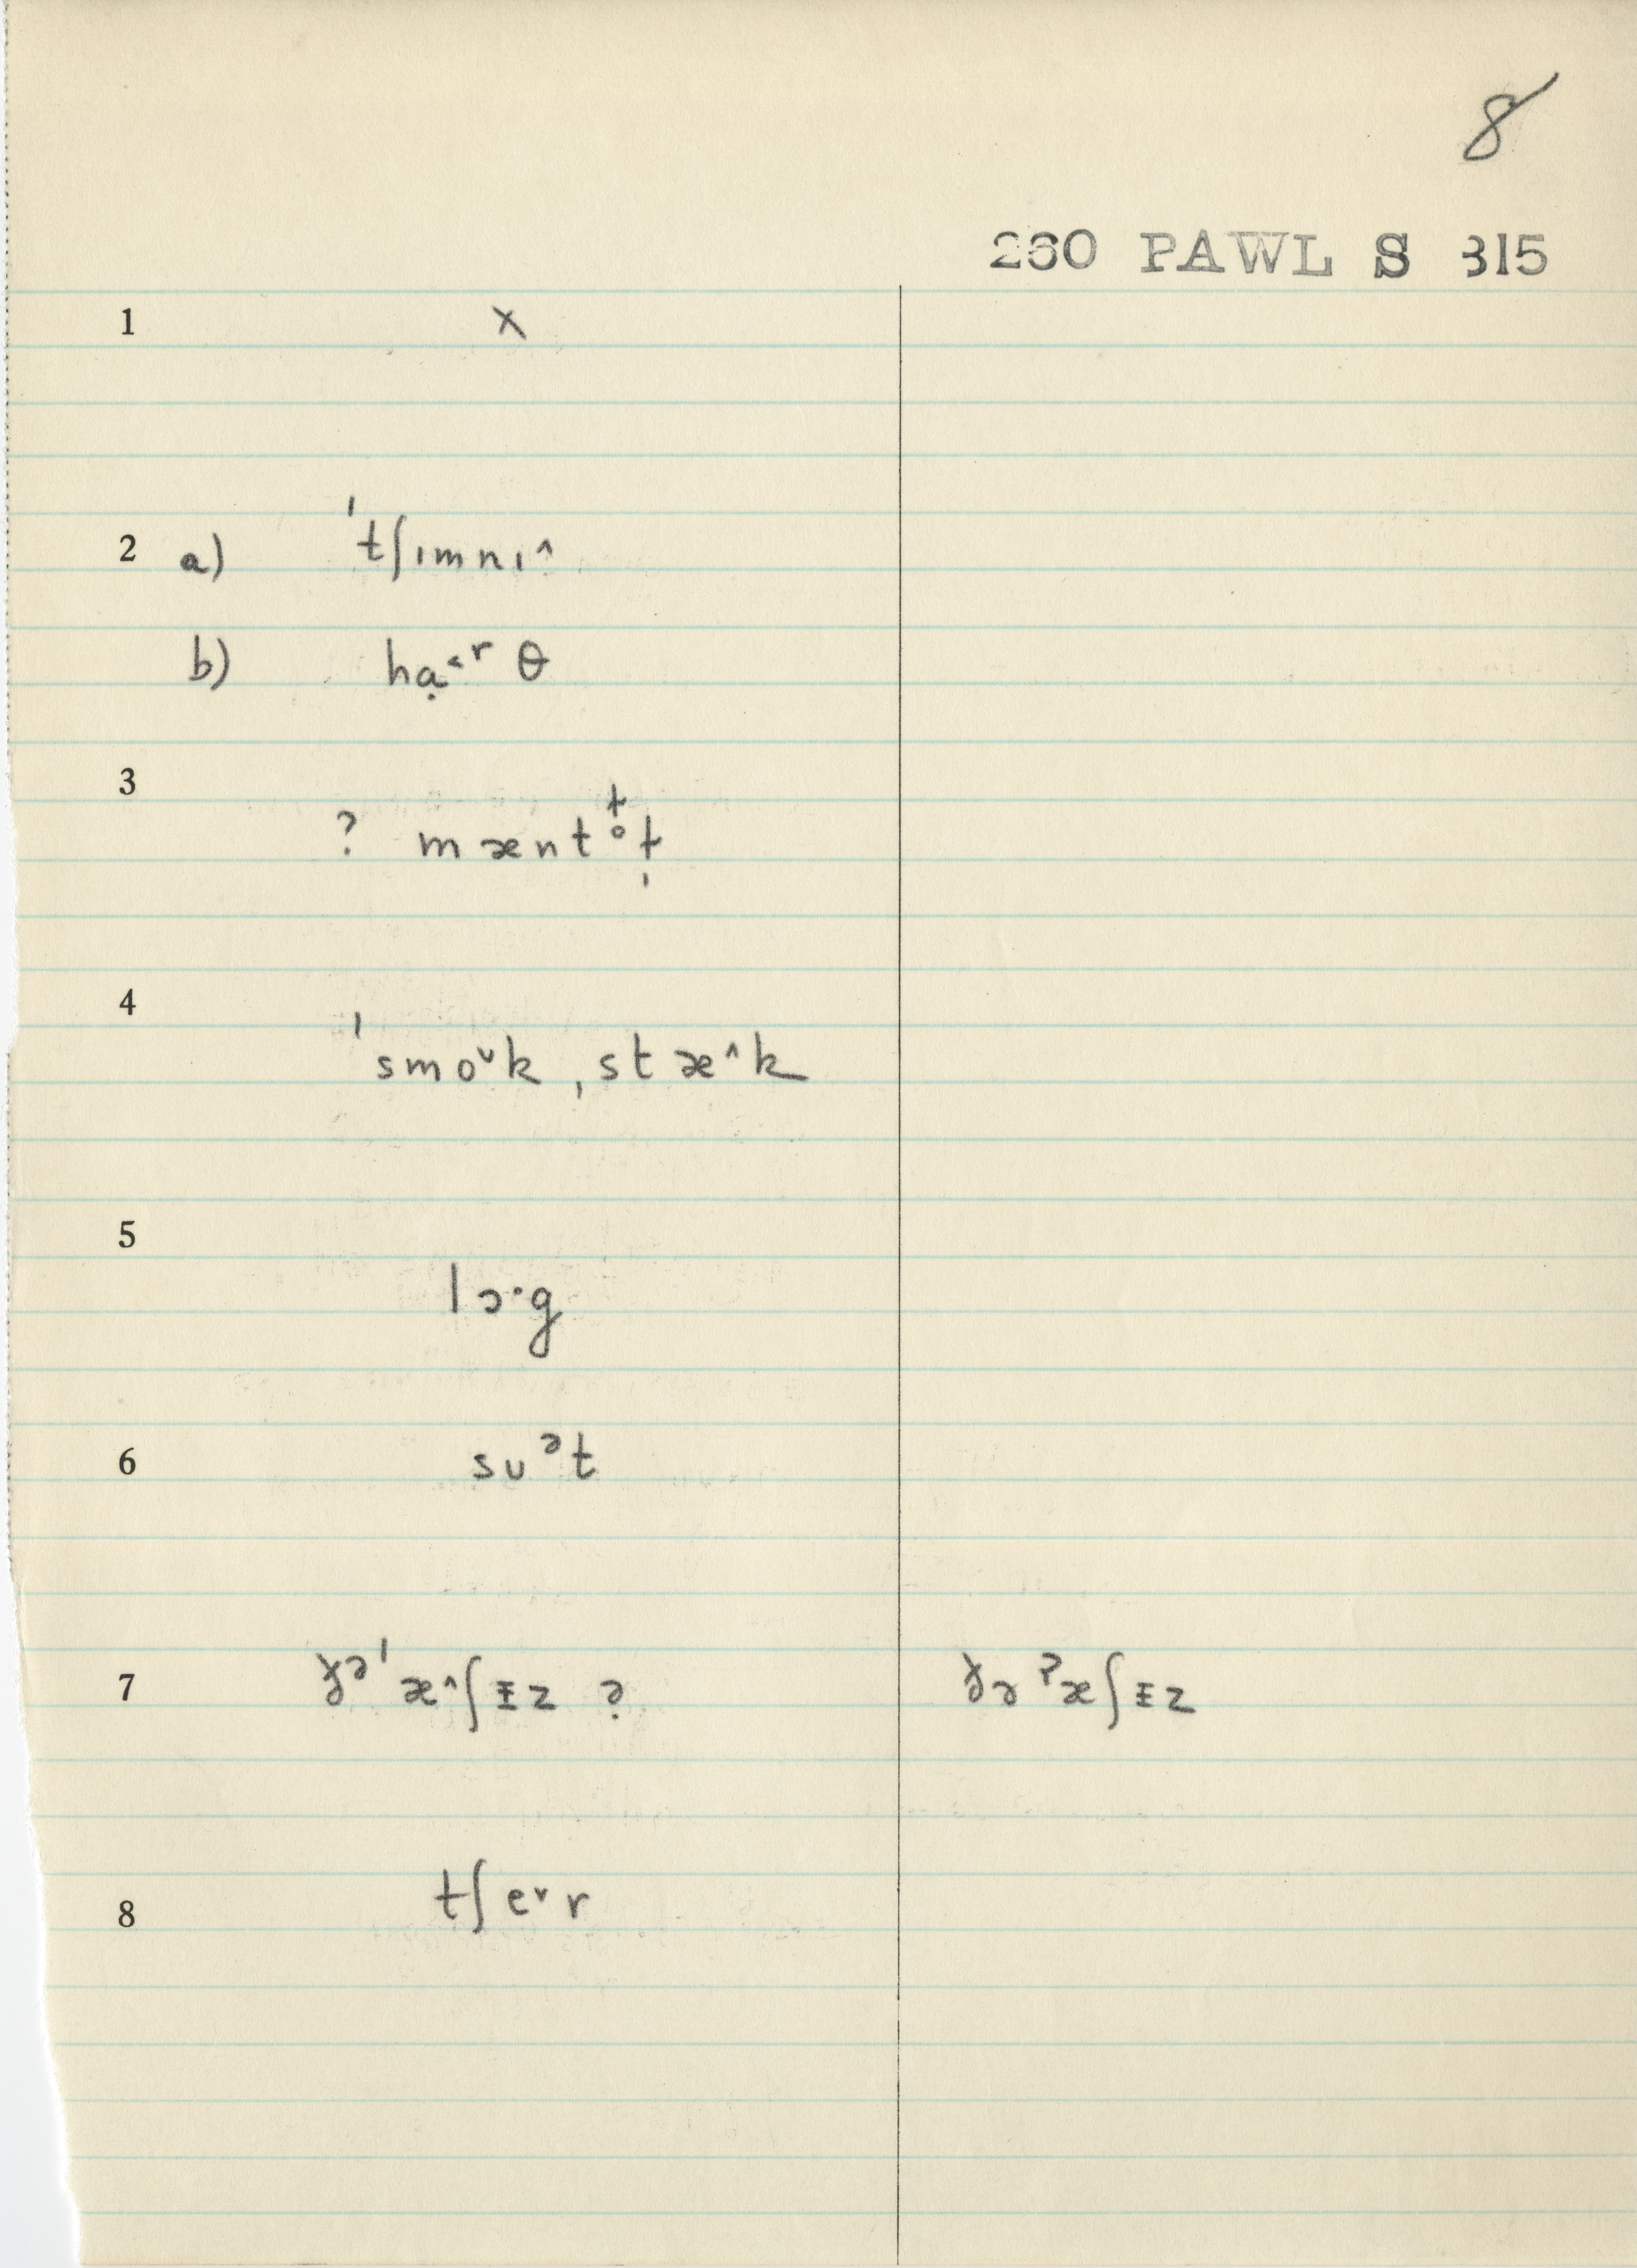 8
260 PAWL S 315
1 x
2 a) ˈtʃɪmnɪ^
b) hạ˂ʳ θ
3
? mænt
4
ˈsmo˅k ˌstæ^k
5
lɔ·g
6 sᴜᵊt
7 ə ˈæ^ʃᵻz ? ə ʔæʃᵻz
8 tʃe˅r